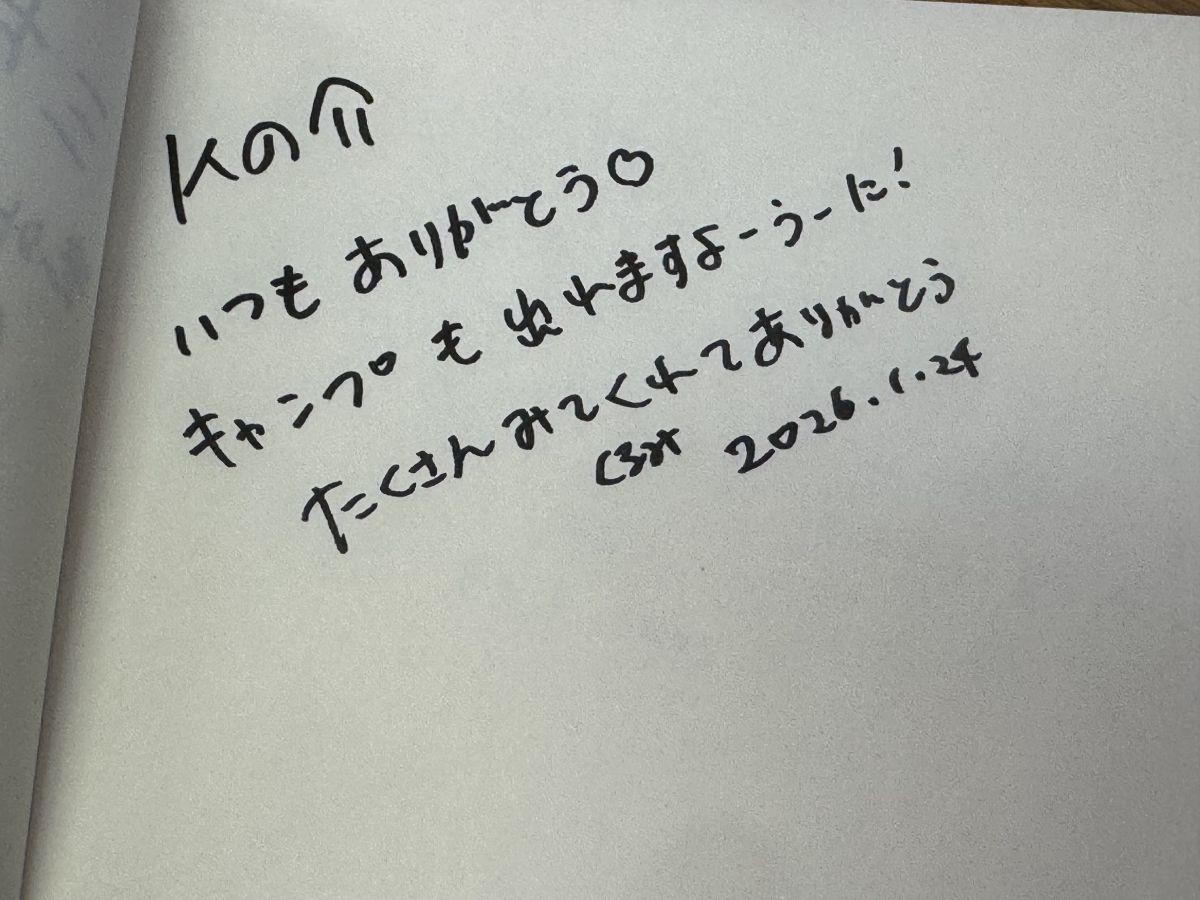 Kの介
いつもありがとう♡
キャンプも出れますよーうーに!
たくさんみてくれてありがとう
2026.1.24